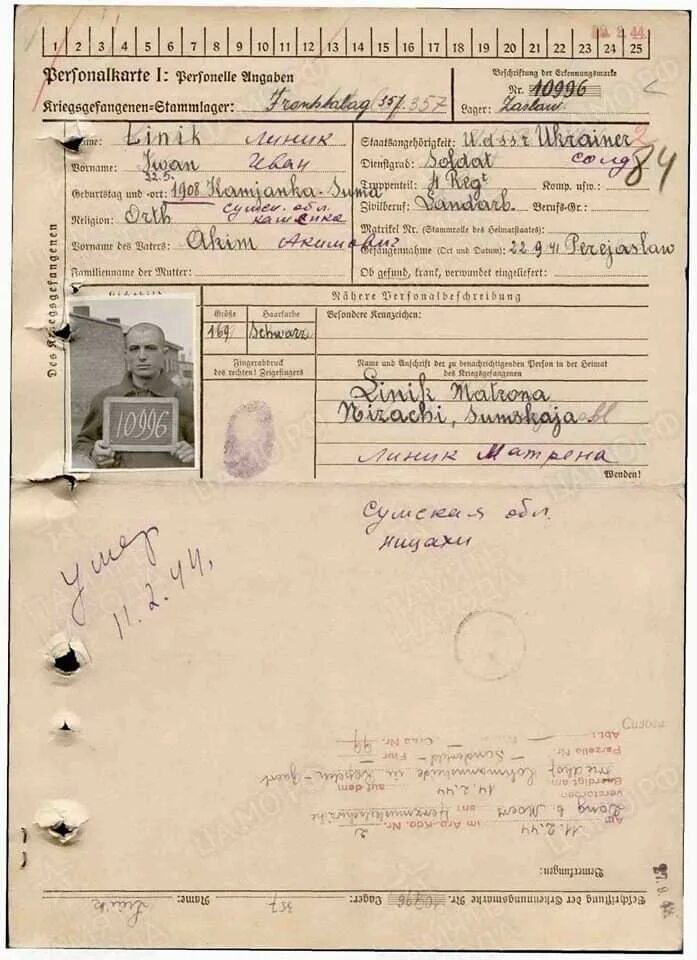 1 2 3 4 5 6 7 8 9 10 11 12 13 14 15 16 17 18 19 20 21 22 23 24 25
Personalkarte I: Personelle Angaben
Kriegsgefangenen=Stammlager: Frontstalag (357. 357
Beschriftung der Erkennungsmarke
Nr. 10996
Lager: Zaslaw
Des Kriegsgefangenen
Name: Linik Линик
Vorname: Iwan Иван
Geburtstag und -ort: 22.5. 1908 Kamjanka-Suma
сумск. обл.
Religion: Orth
Vorname des Vaters: Akim Акимович
Familienname der Mutter:
Staatsangehörigkeit: U.d.S.S.R. Ukrainer 2
Dienstgrad: Soldat солд 84
Truppenteil: 4 Regt Komp. usw.:
Zivilberuf: Landarb. Berufs-Gr.:
Matrikel Nr. (Stammrolle des Heimatstaates):
Gefangennahme (Ort und Datum): 22.9.41 Perejaslaw
Ob gesund, krank, verwundet eingeliefert:
Lichtbild
10996
Nähere Personalbeschreibung
Größe Haarfarbe Besondere Kennzeichen:
169 Schwarz
Fingerabdruck
des rechten! Zeigefingers
Name und Anschrift der zu benachrichtigenden Person in der Heimat
des Kriegsgefangenen
Linik Matrona
Nizachi, Sumskaja obl
Линик Матрена
Wenden!
Сумская обл.
Ницахи
умер
11.2.44.
Abl.:
Parzelle Nr.
Flur 99 Grab Nr.
Friedhof
Beerdigt am 14.2.44 auf dem
verstorben
Am 11.2.44 im Arb.-Kdo. Nr. 2
an:
Bemerkungen:
Beschriftung der Erkennungsmarke Nr. 10996 Lager: 357 Name: Linik